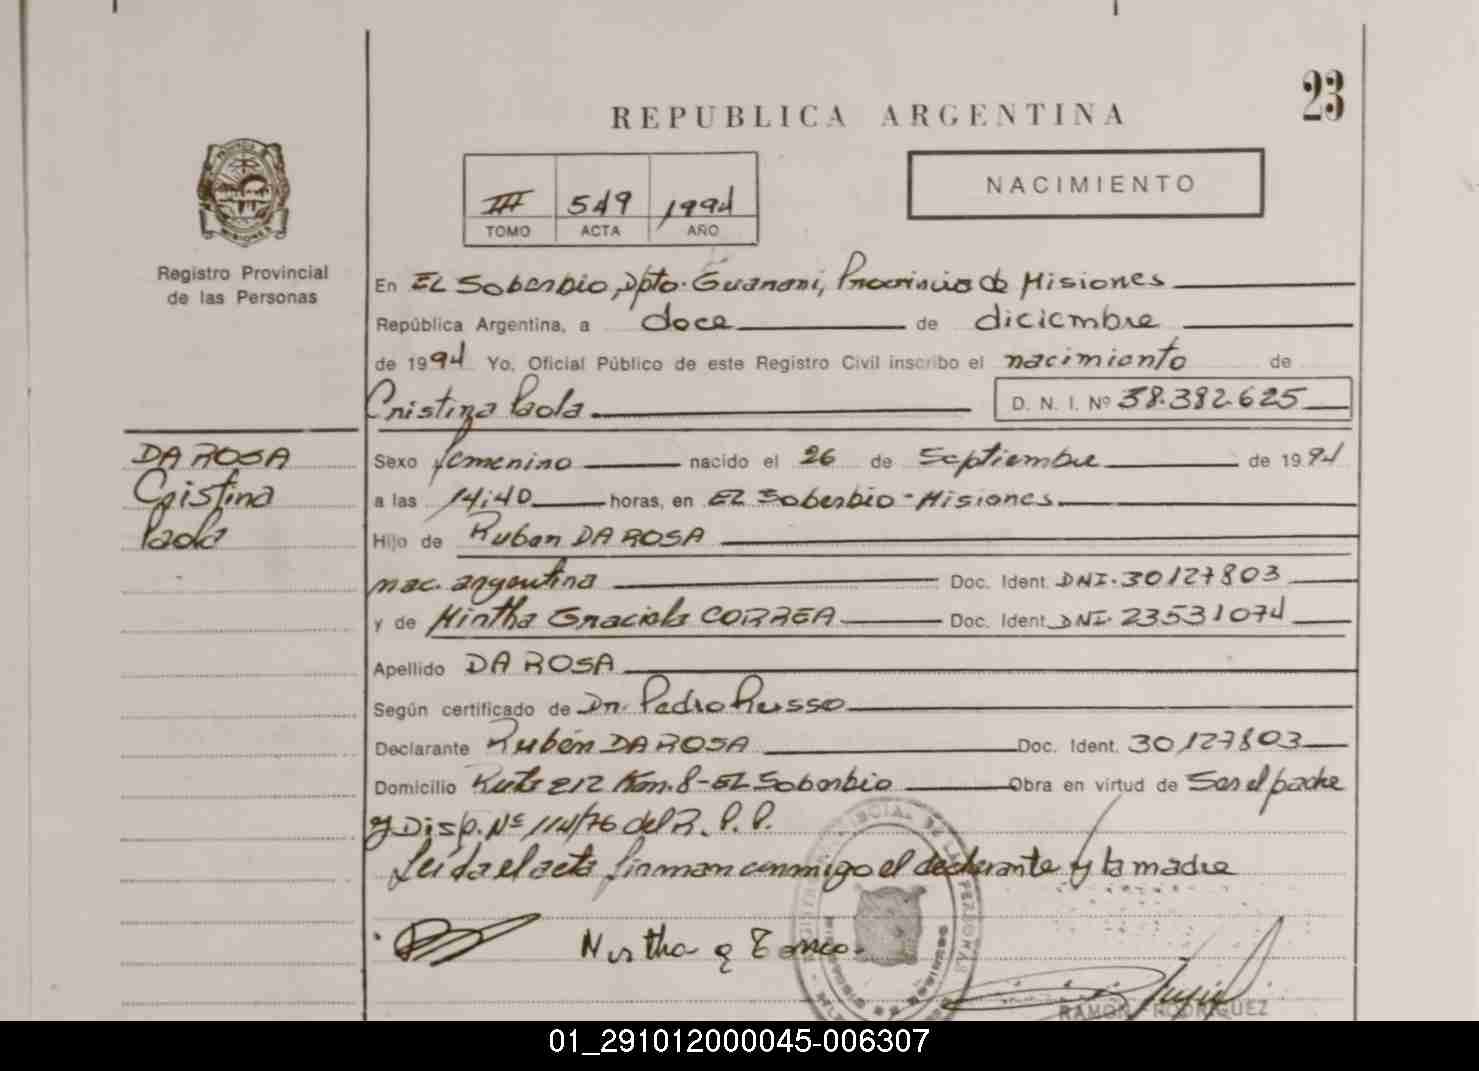 23
REPUBLICA ARGENTINA
NACIMIENTO
III 549 1994
TOMO ACTA AÑO
Registro Provincial
de las Personas
En EL Soberbio, Dpto. Guarani, Provincia de Misiones
República Argentina, a doce de diciembre
de 1994 Yo, Oficial Público de este Registro Civil inscribo el nacimiento de
Cristina Paola D. N. I. Nº 38.382.625
DA ROSA
Cristina
Paola
Sexo femenino nacido el 26 de Septiembre de 1994
a las 14:40 horas, en EL Soberbio - Misiones
Hijo de Ruben DA ROSA
nac. argentina Doc. Ident. DNI. 30127803
y de Mirtha Graciela CORREA Doc. Ident. DNI. 23531074
Apellido DA ROSA
Según certificado de Dr. Pedro Russo
Declarante Rubén DA ROSA Doc. Ident. 30127803
Domicilio Ruta 212 Km. 8 - EL Soberbio Obra en virtud de Ser el padre
y Disp. Nº 114/76 del R. P. P.
Leída el acta firman conmigo el declarante y la madre
RAMON RODRIGUEZ
01_291012000045-006307